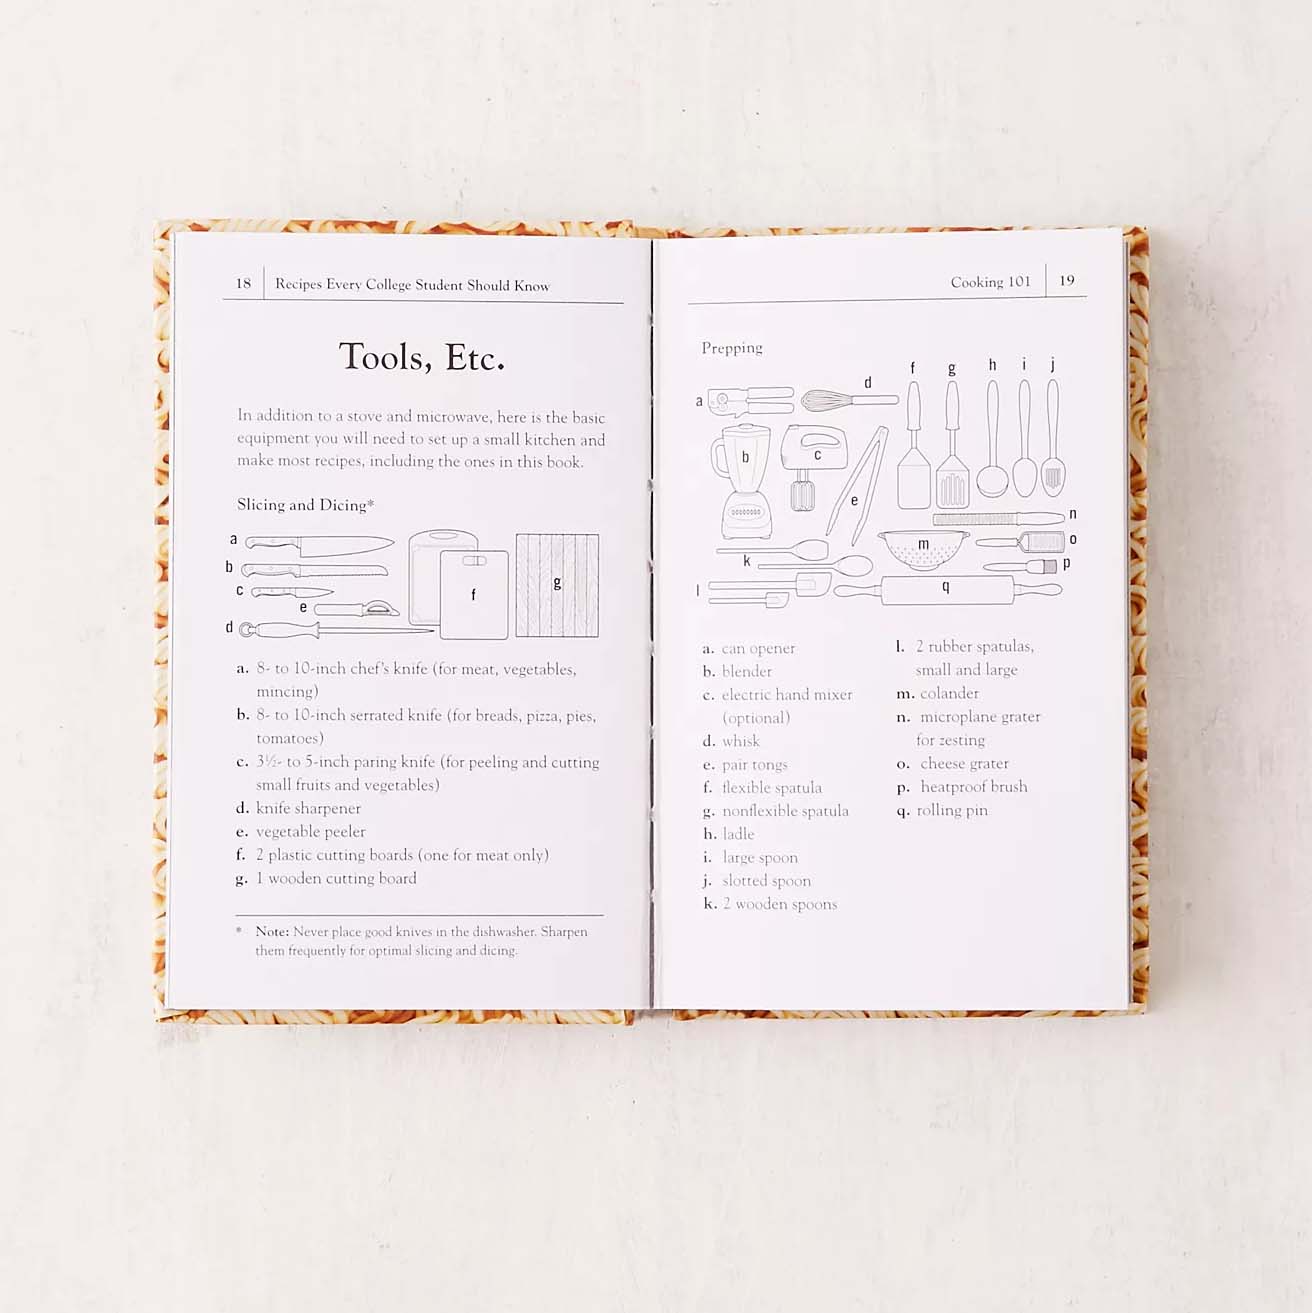 18 Recipes Every College Student Should Know
Tools, Etc.
In addition to a stove and microwave, here is the basic
equipment you will need to set up a small kitchen and
make most recipes, including the ones in this book.
Slicing and Dicing*
a
b
c
e
d
f
g
a. 8- to 10-inch chef's knife (for meat, vegetables,
mincing)
b. 8- to 10-inch serrated knife (for breads, pizza, pies,
tomatoes)
c. 3½- to 5-inch paring knife (for peeling and cutting
small fruits and vegetables)
d. knife sharpener
e. vegetable peeler
f. 2 plastic cutting boards (one for meat only)
g. 1 wooden cutting board
* Note: Never place good knives in the dishwasher. Sharpen
them frequently for optimal slicing and dicing.
Cooking 101 19
Prepping
a
d
f
g
h
i
j
b
c
e
n
m
o
k
p
l
q
a. can opener
b. blender
c. electric hand mixer
(optional)
d. whisk
e. pair tongs
f. flexible spatula
g. nonflexible spatula
h. ladle
i. large spoon
j. slotted spoon
k. 2 wooden spoons
l. 2 rubber spatulas,
small and large
m. colander
n. microplane grater
for zesting
o. cheese grater
p. heatproof brush
q. rolling pin